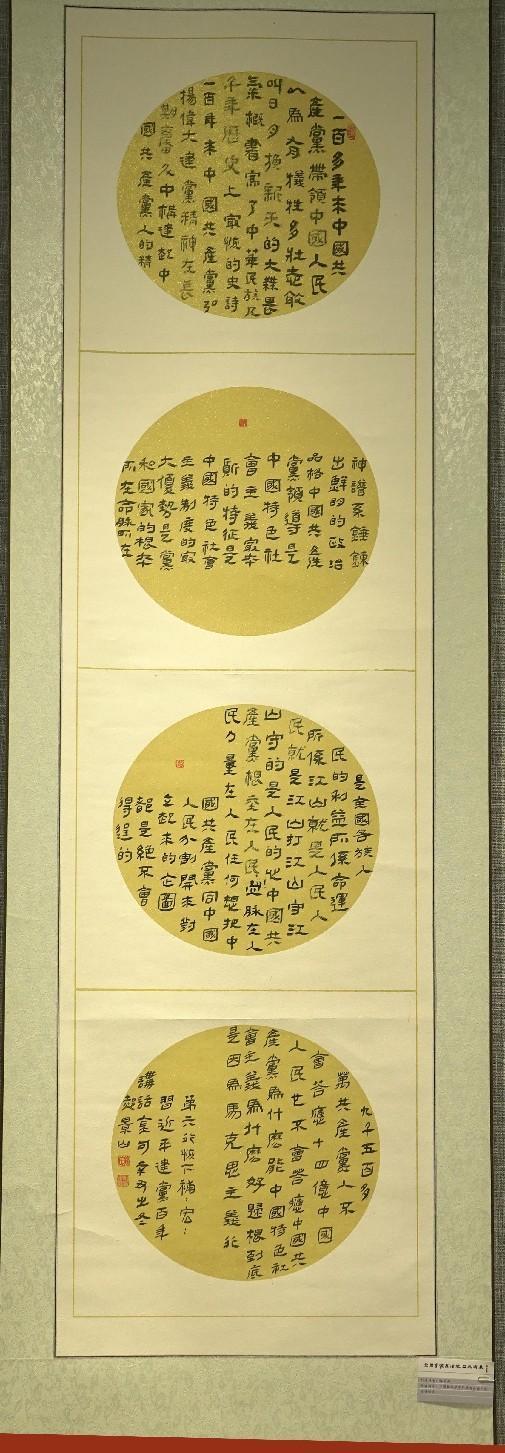 一百多年来中國共
產黨帶領中國人民
以為有犧牲多壯志敢
叫日月換新天的大無畏
氣概書寫了中華民族几
千年歷史上最恢的史詩
一百年来中國共產黨弘
揚偉大建黨精神在長
期奮鬥中構建起中
國共產黨人的精
神譜系錘鍊
出鮮明的政治
品格中國共產
黨領導是
中國特色社
會主義最本
質的特征是
中國特色社會
主義制度的最
大優勢是黨
和國家的根本
所在命脉所在
是全國各族人
民的利益所係命運
所係江山就是人民人
民就是江山打江山守江
山守的是人民的心中國共
產黨根在在人民血脉在人
民力量在人民任何想把中
國共產黨同中國
人民分割開来對
立起来的企圖
都是絕不會
得逞的
九千五百多
萬共產黨人不
會答應十四億中國
人民也不會答應中國共
產黨為什麽能中國特色社
會主義為什麽好歸根到底
是因為馬克思主義行
第六行恢下補宏
習近平建黨百年
講話